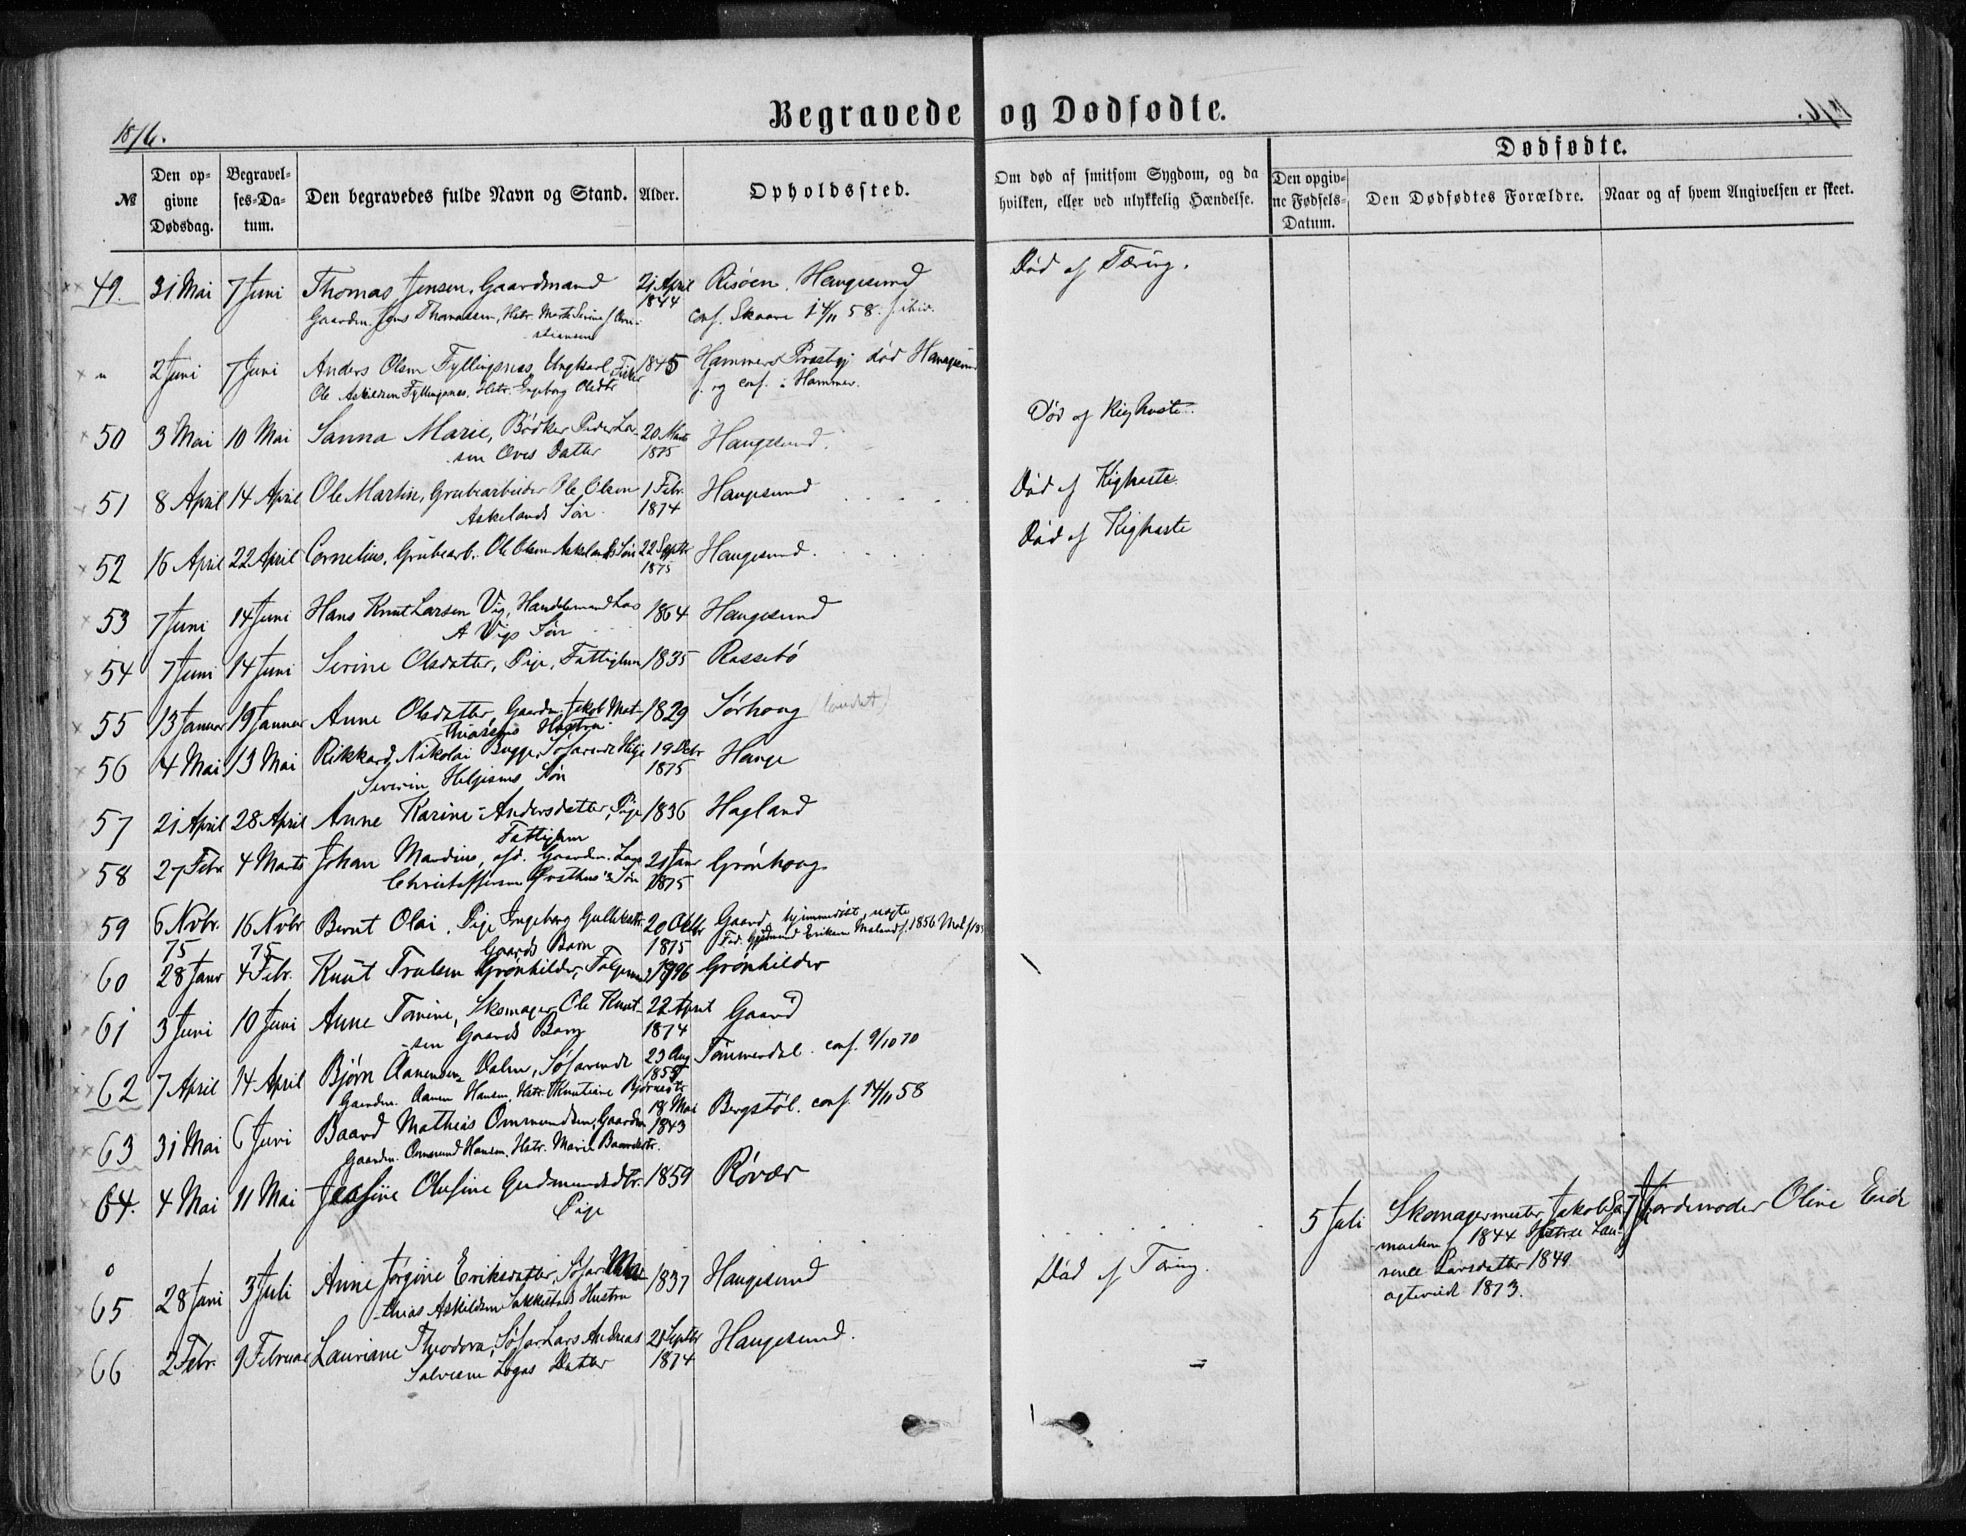 Begravede og Dødfødte.
1876.
1876.
Dødfødte.
№
Den opgivne Dødsdag.
Begravelses-Datum.
Den begravedes fulde Navn og Stand.
Alder.
Opholdssted.
Om død af smitsom Sygdom, og da hvilken, eller ved ulykkelig Hændelse.
Den opgivne Fødsels-Datum.
Den Dødfødtes Forældre.
Naar og af hvem Angivelsen er skeet.
49. 31 Mai 7 Juni Thomas Jensen, Gaardmand 21 April 1844 Risøen, Haugesund Død af Tæring.
Gaardm. Jens Thomassen, Hstr. Marte Serine Christiansen conf. Skaare 14/11 58.
" 2 Juni 7 Juni Anders Olsen Fyllingsnes, Ungkarl Fisker 1845 Hammers Præstgj død Haugesund
Ole Askildsen Fyllingsnes, Hstr. Ingeborg Olsdtr f. og conf. i Hammer.
50 3 Mai 10 Mai Sanna Marie, Bødker Peder Larsen Øvres Datter 20 Marts 1875 Haugesund. Død af Kighoste.
51 8 April 14 April Ole Martin, Grubearbeider Ole Olsen Askelands Søn 1 Febr. 1874 Haugesund Død af Kighoste
52 16 April 22 April Cornelius, Grubearb. Ole Olsen Askelands Søn 22 Septbr 1875 Haugesund. Død af Kighoste
53 7 Juni 14 Juni Hans Knut Larsen Vig, Handelsmand Lars A Vigs Søn 1864 Haugesund
54 7 Juni 14 Juni Serine Olsdatter, Pige, Fattiglem 1835 Rossebø
55 13 Januar 19 Januar Anne Olsdatter, Gaardm. Jakob Mathiasens Hustru 1829 Sørhoug (landet)
56 4 Mai 13 Mai Rikkard Nikolai Bugge, Søfarende Helje Severin Heljesens Søn 19 Debr 1875 Hauge
57 21 April 28 April Anne Karine Andersdatter, Pige Fattiglem 1836 Hagland
58 27 Febr 4 Marts Johan Mardius, afd. Gaardm. Lars Christoffersen Østhus's Søn 21 Janr 1875 Grønhoug
59 6 Novbr. 75 16 Novbr 75 Bernt Olai, Pige Ingeborg Gulleksdtr. Gaards Barn 20 Oktbr 1875 Gaard, hjemmedøbt, uægte
Fad. Gudmund Eriksen Meland f. 1856
60 28 Janr 4 Febr. Knut Trulsen Grønhilder, Folgemand 1796 Grønhilder
61 3 Juni 10 Juni Anne Tomine, Skomager Ole Knutsen Gaards Barn 22 April 1874 Gaard
62 7 April 14 April Bjørn Aanensen Dalen, Søfarende 23 Aug 1855 Tømmerdal. conf. 9/10 70
Gaardm. Aanen Hansen, Hstr. Knutiane Bjørnsdtr
63 31 Mai 6 Juni Baard Mathias Ommundsen, Gaardm 18 Mai 1843 Bergstøl. conf. 14/11 58
Gaardm. Ommund Hansen, Hstr. Marie Baardsdtr.
64. 4 Mai 11 Mai Josefine Olufine Gudmundsdtr. Pige 1859 Røvær
5 Juli Skomagermester Jakob f 1844 Hustru Laurense Larsdatter 1849 ægteviet 1873. Jordmoder Oline Eide
65 28 Juni 3 Juli Anne Jørgine Eriksdatter, Søfar. Mathias Askildsen Sakkestads Hustru 1837 Haugesund Død af Tæring.
66 2 Febr. 9 Februar Lauriane Theodora, Søfar. Lars Andreas Salvesen Logas Datter 21 Septbr 1874 Haugesund.